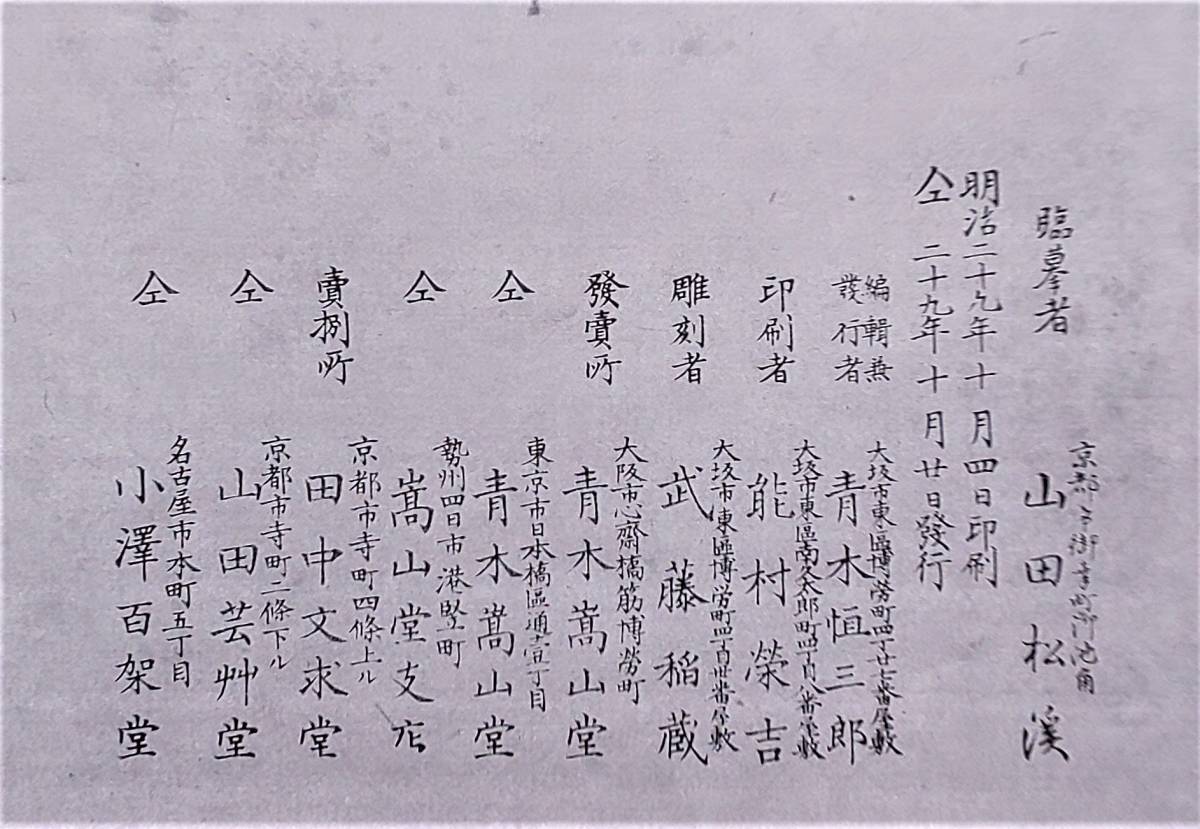 臨摹者 京都市御幸町御池角 山田松溪
明治二十九年十月四日印刷
仝 二十九年十月廿日發行
編輯兼發行者 大坂市東區博労町四丁目廿七番屋敷 青木恒三郎
印刷者 大坂市東區南久太郎町四丁目八番屋敷 能村榮吉
雕刻者 大坂市東區博労町四丁目卅番屋敷 武藤稲蔵
發賣所 大阪市心齋橋筋博勞町 青木嵩山堂
仝 東京市日本橋區通壹丁目 青木嵩山堂
仝 勢州四日市港竪町 嵩山堂支店
賣捌所 京都市寺町四條上ル 田中文求堂
仝 京都市寺町二條下ル 山田芸艸堂
仝 名古屋市本町五丁目 小澤百架堂